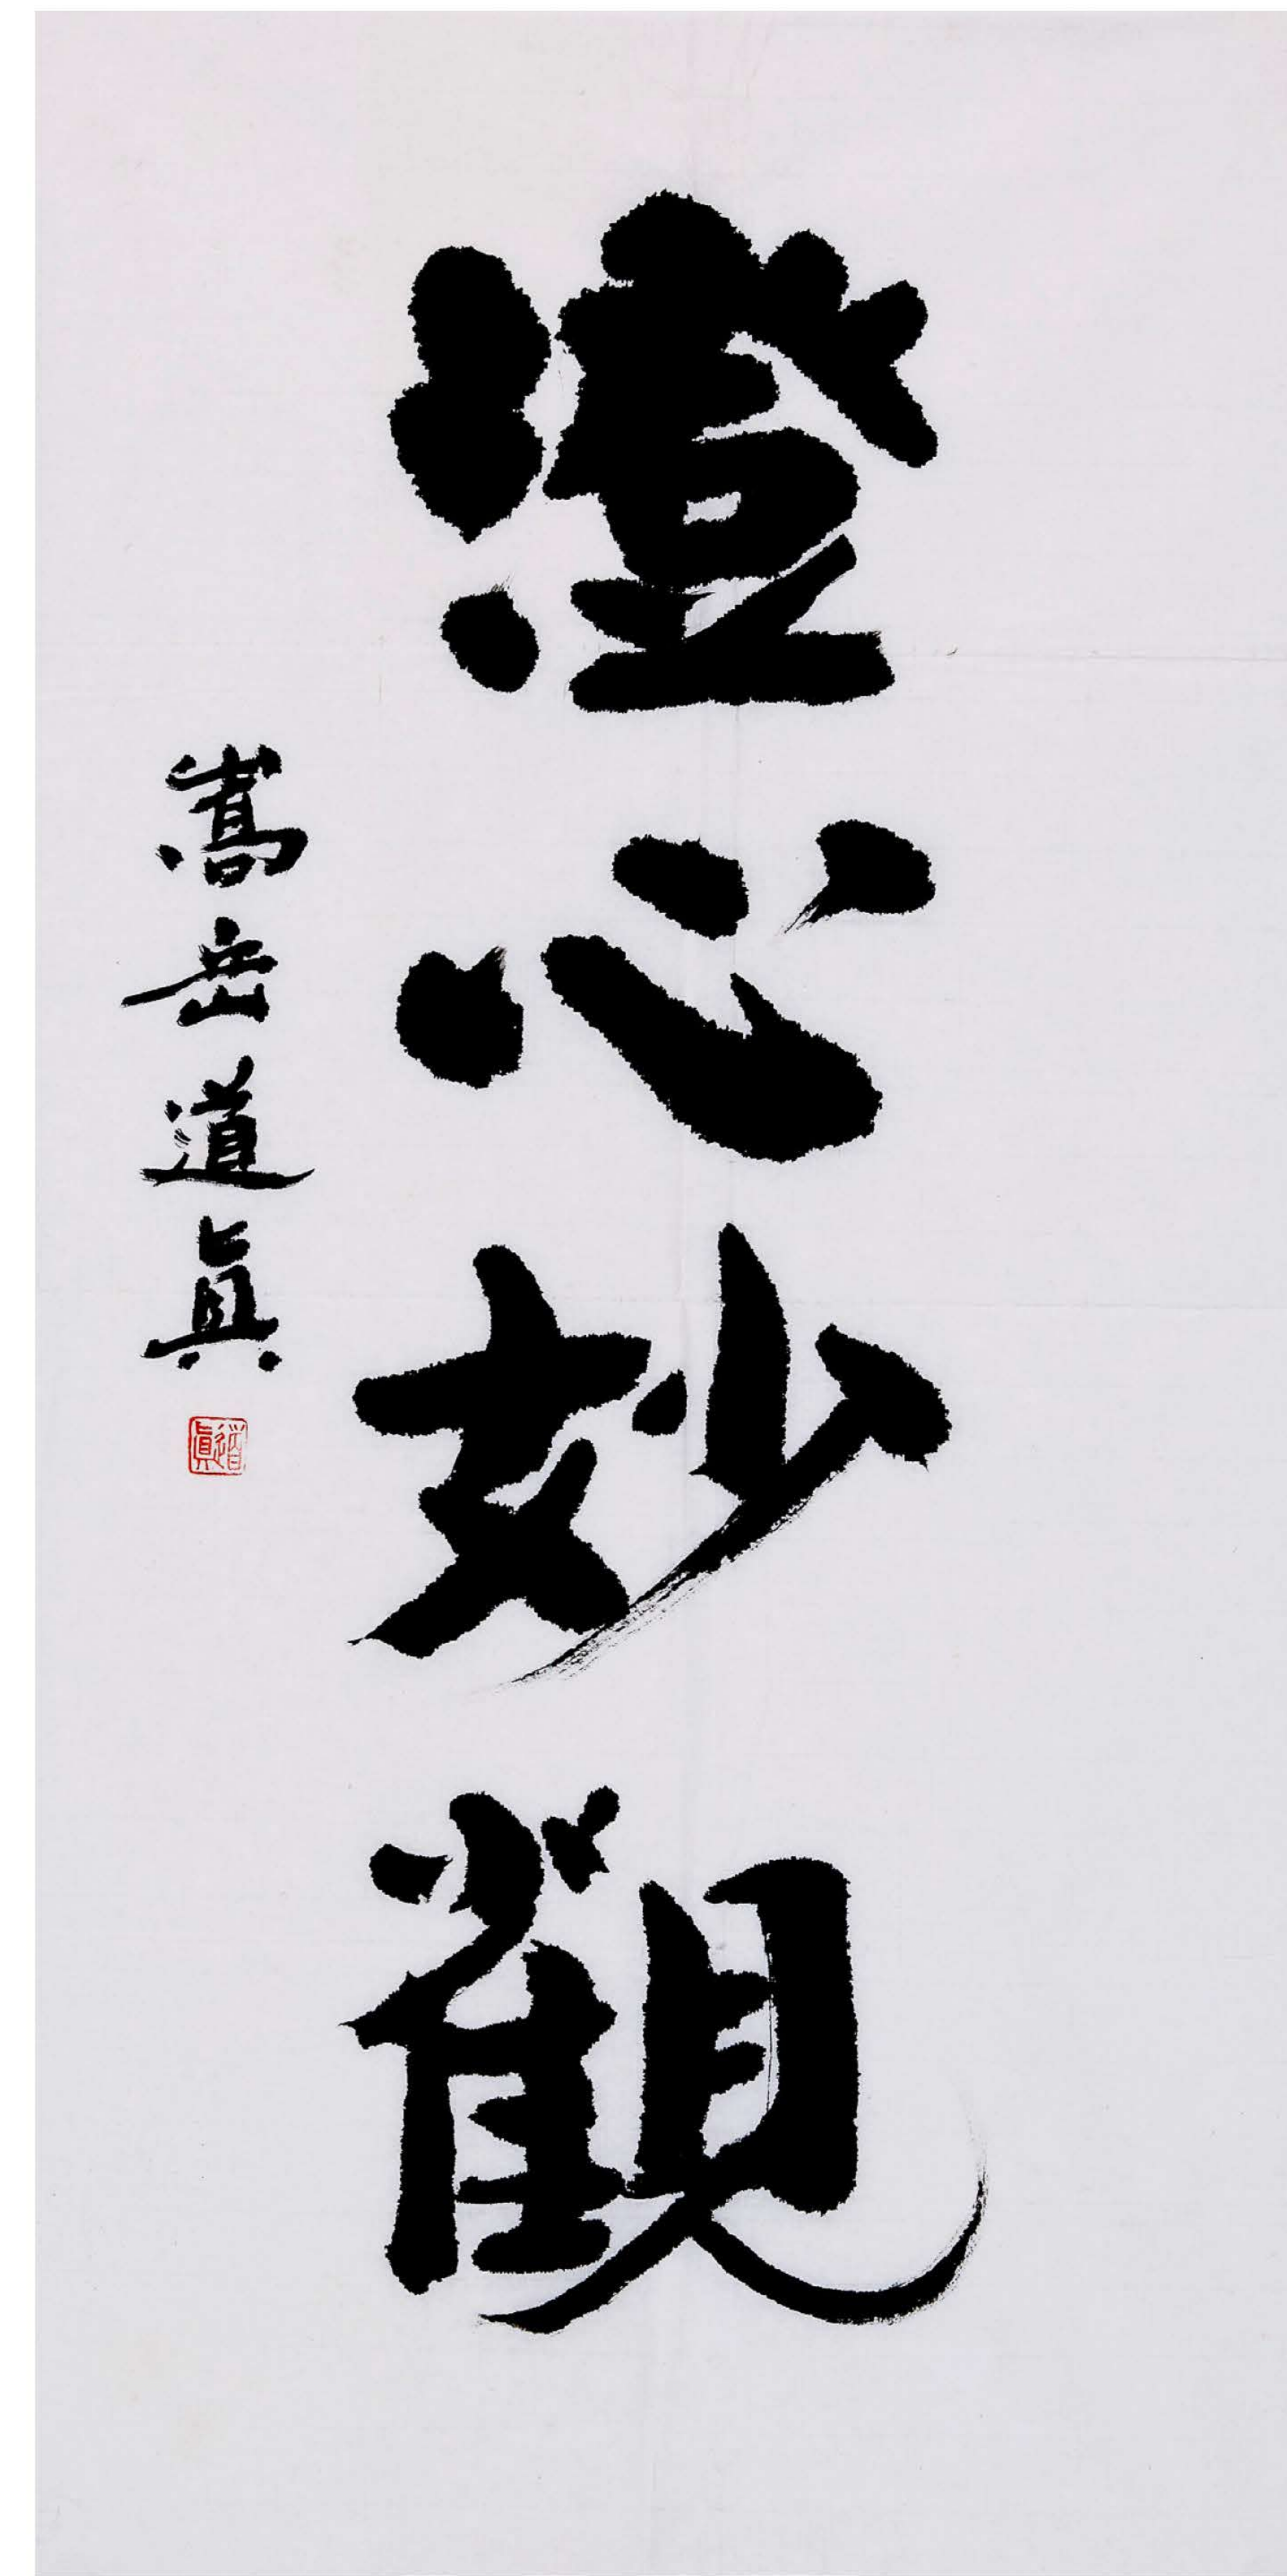 澄心妙觀
嵩岳道真
道真